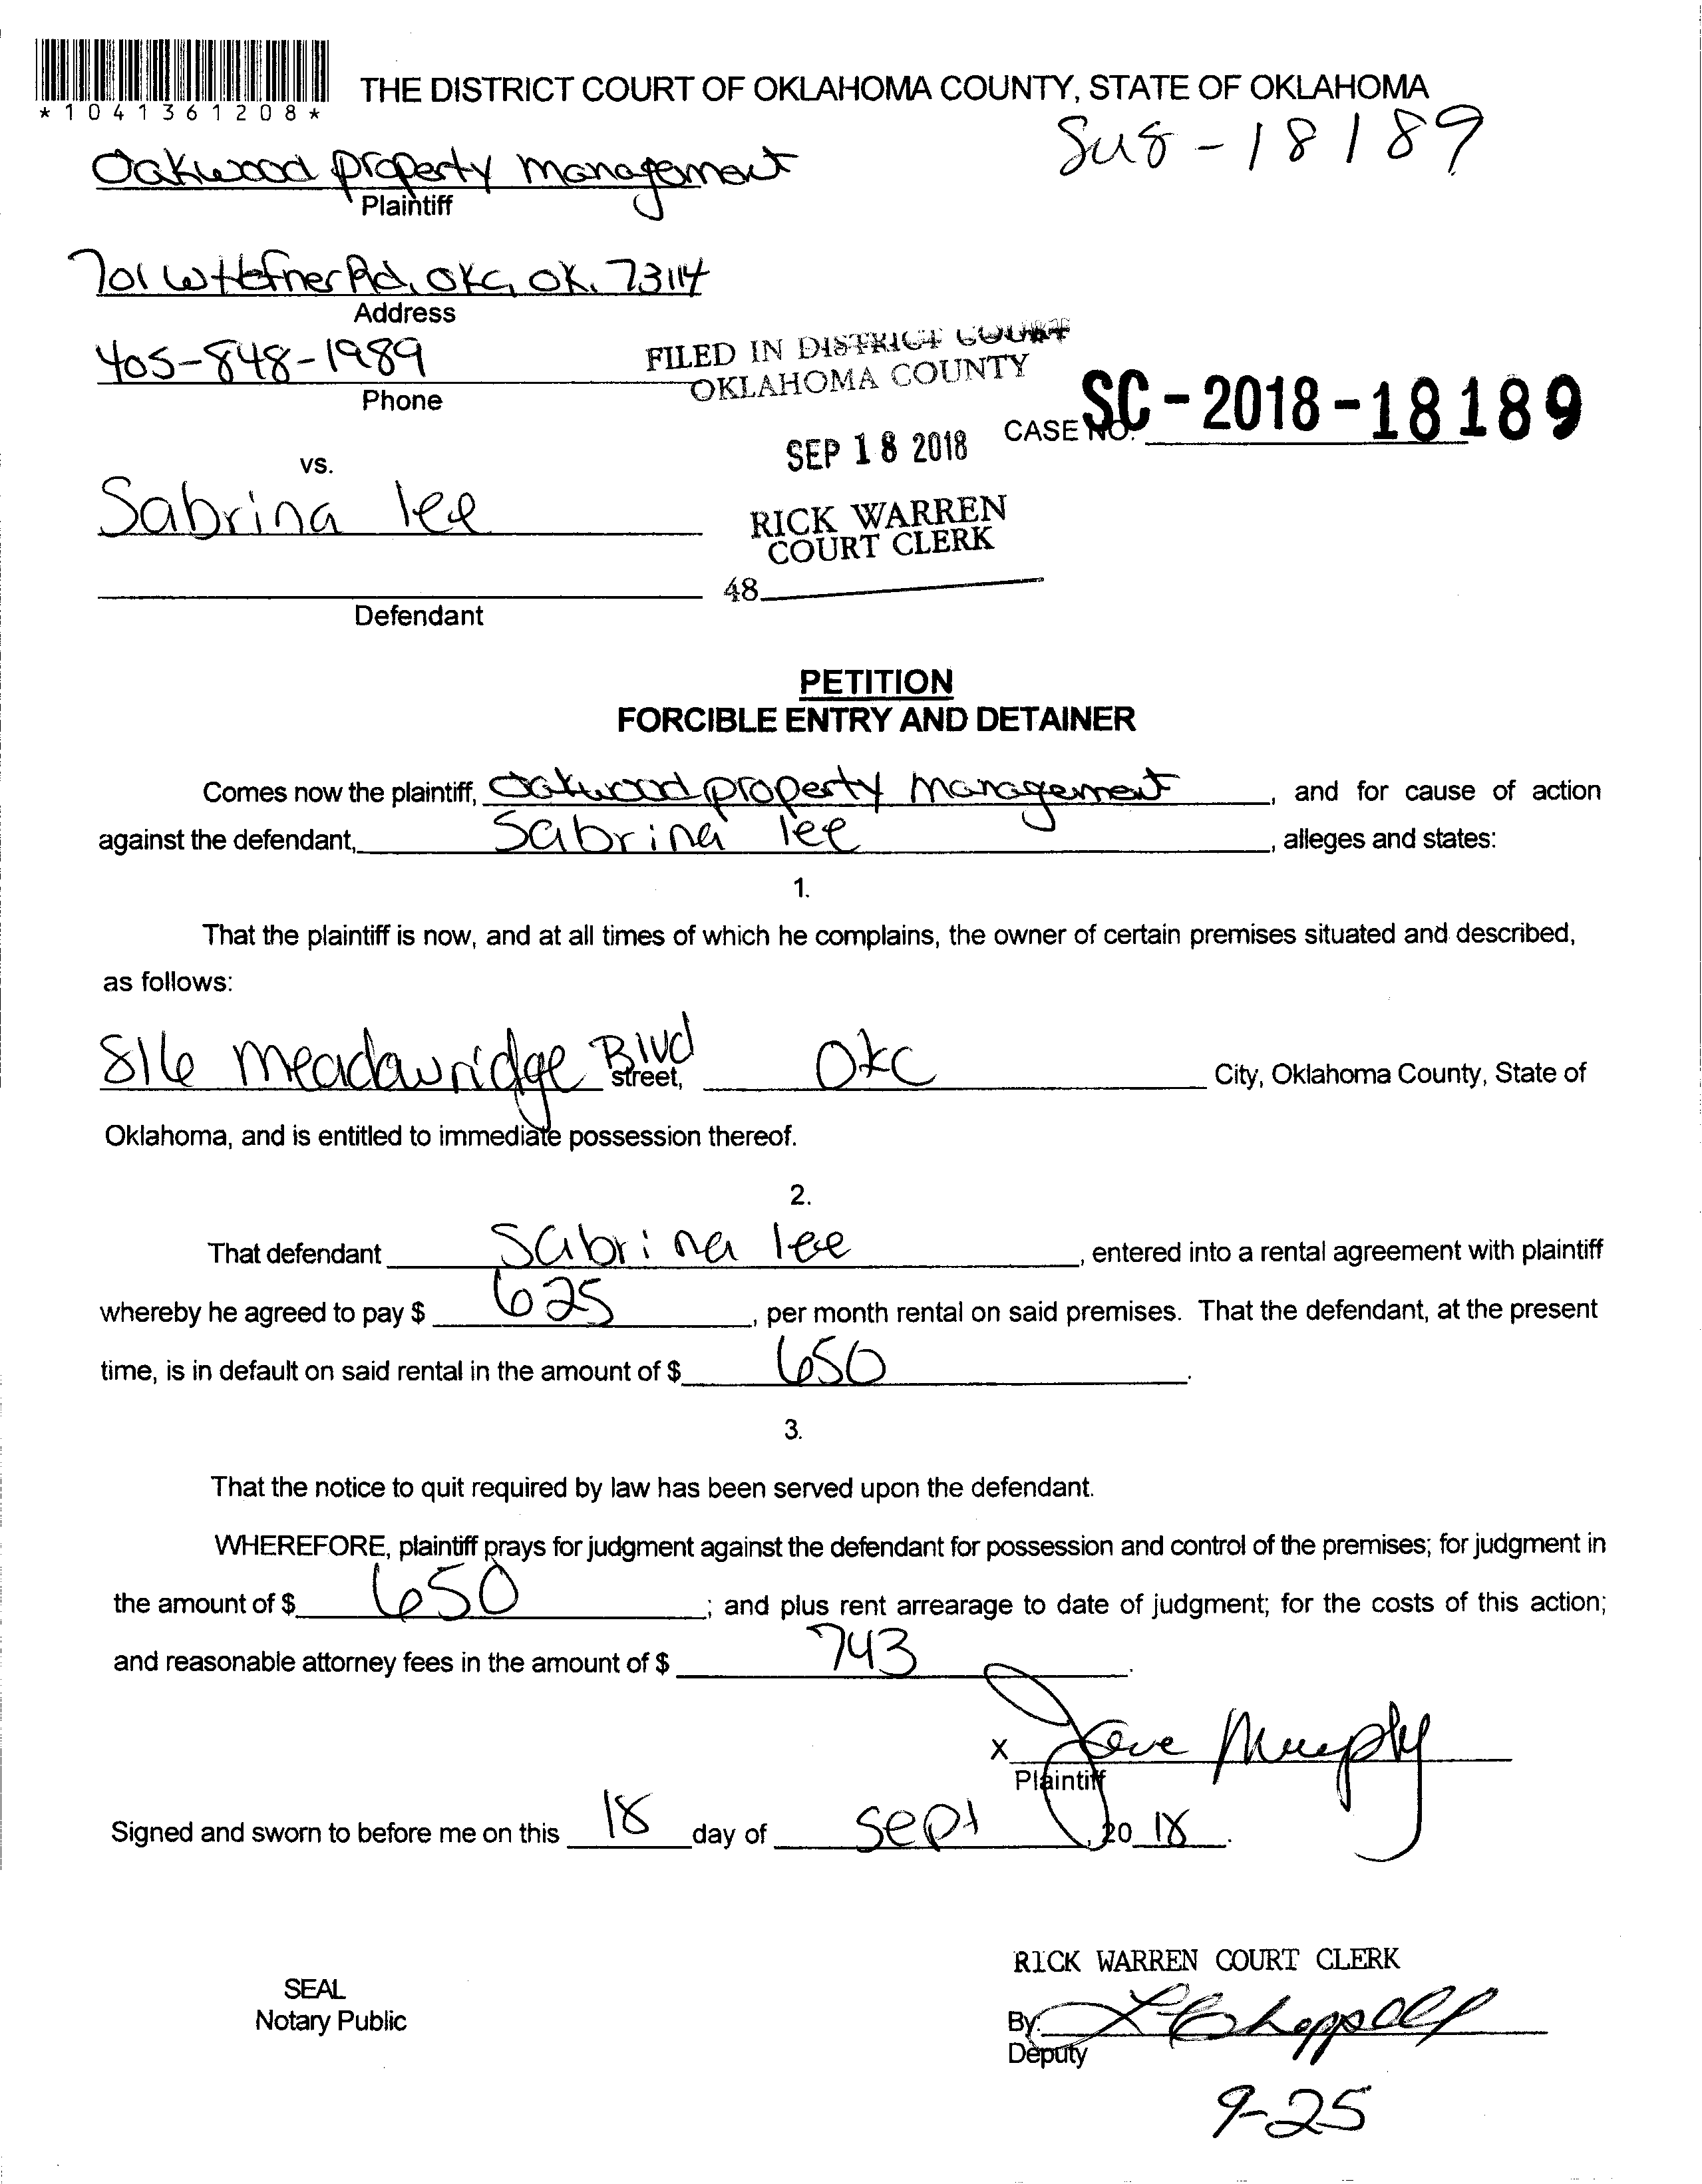 *1041361208*
THE DISTRICT COURT OF OKLAHOMA COUNTY, STATE OF OKLAHOMA
18189
Oakwood property management
Plaintiff
701 W Hefner Rd, OKC, OK. 73114
Address
405-848-1989
Phone
FILED IN DISTRICT COURT
OKLAHOMA COUNTY
SEP 18 2018
CASE NO. SC-2018-18189
vs.
Sabrina lee
RICK WARREN
COURT CLERK
48
Defendant
PETITION
FORCIBLE ENTRY AND DETAINER
Comes now the plaintiff, Oakwood property management, and for cause of action
against the defendant, Sabrina lee, alleges and states:
1.
That the plaintiff is now, and at all times of which he complains, the owner of certain premises situated and described,
as follows:
816 meadowridge Blvd street, OKC City, Oklahoma County, State of
Oklahoma, and is entitled to immediate possession thereof.
2.
That defendant Sabrina lee, entered into a rental agreement with plaintiff
whereby he agreed to pay $ 625, per month rental on said premises. That the defendant, at the present
time, is in default on said rental in the amount of $ 650.
3.
That the notice to quit required by law has been served upon the defendant.
WHEREFORE, plaintiff prays for judgment against the defendant for possession and control of the premises; for judgment in
the amount of $ 650; and plus rent arrearage to date of judgment; for the costs of this action;
and reasonable attorney fees in the amount of $ 743.
X Murphy
Plaintiff
Signed and sworn to before me on this 18 day of Sept, 20 18.
RICK WARREN COURT CLERK
SEAL
Notary Public
By:
Deputy
9-25